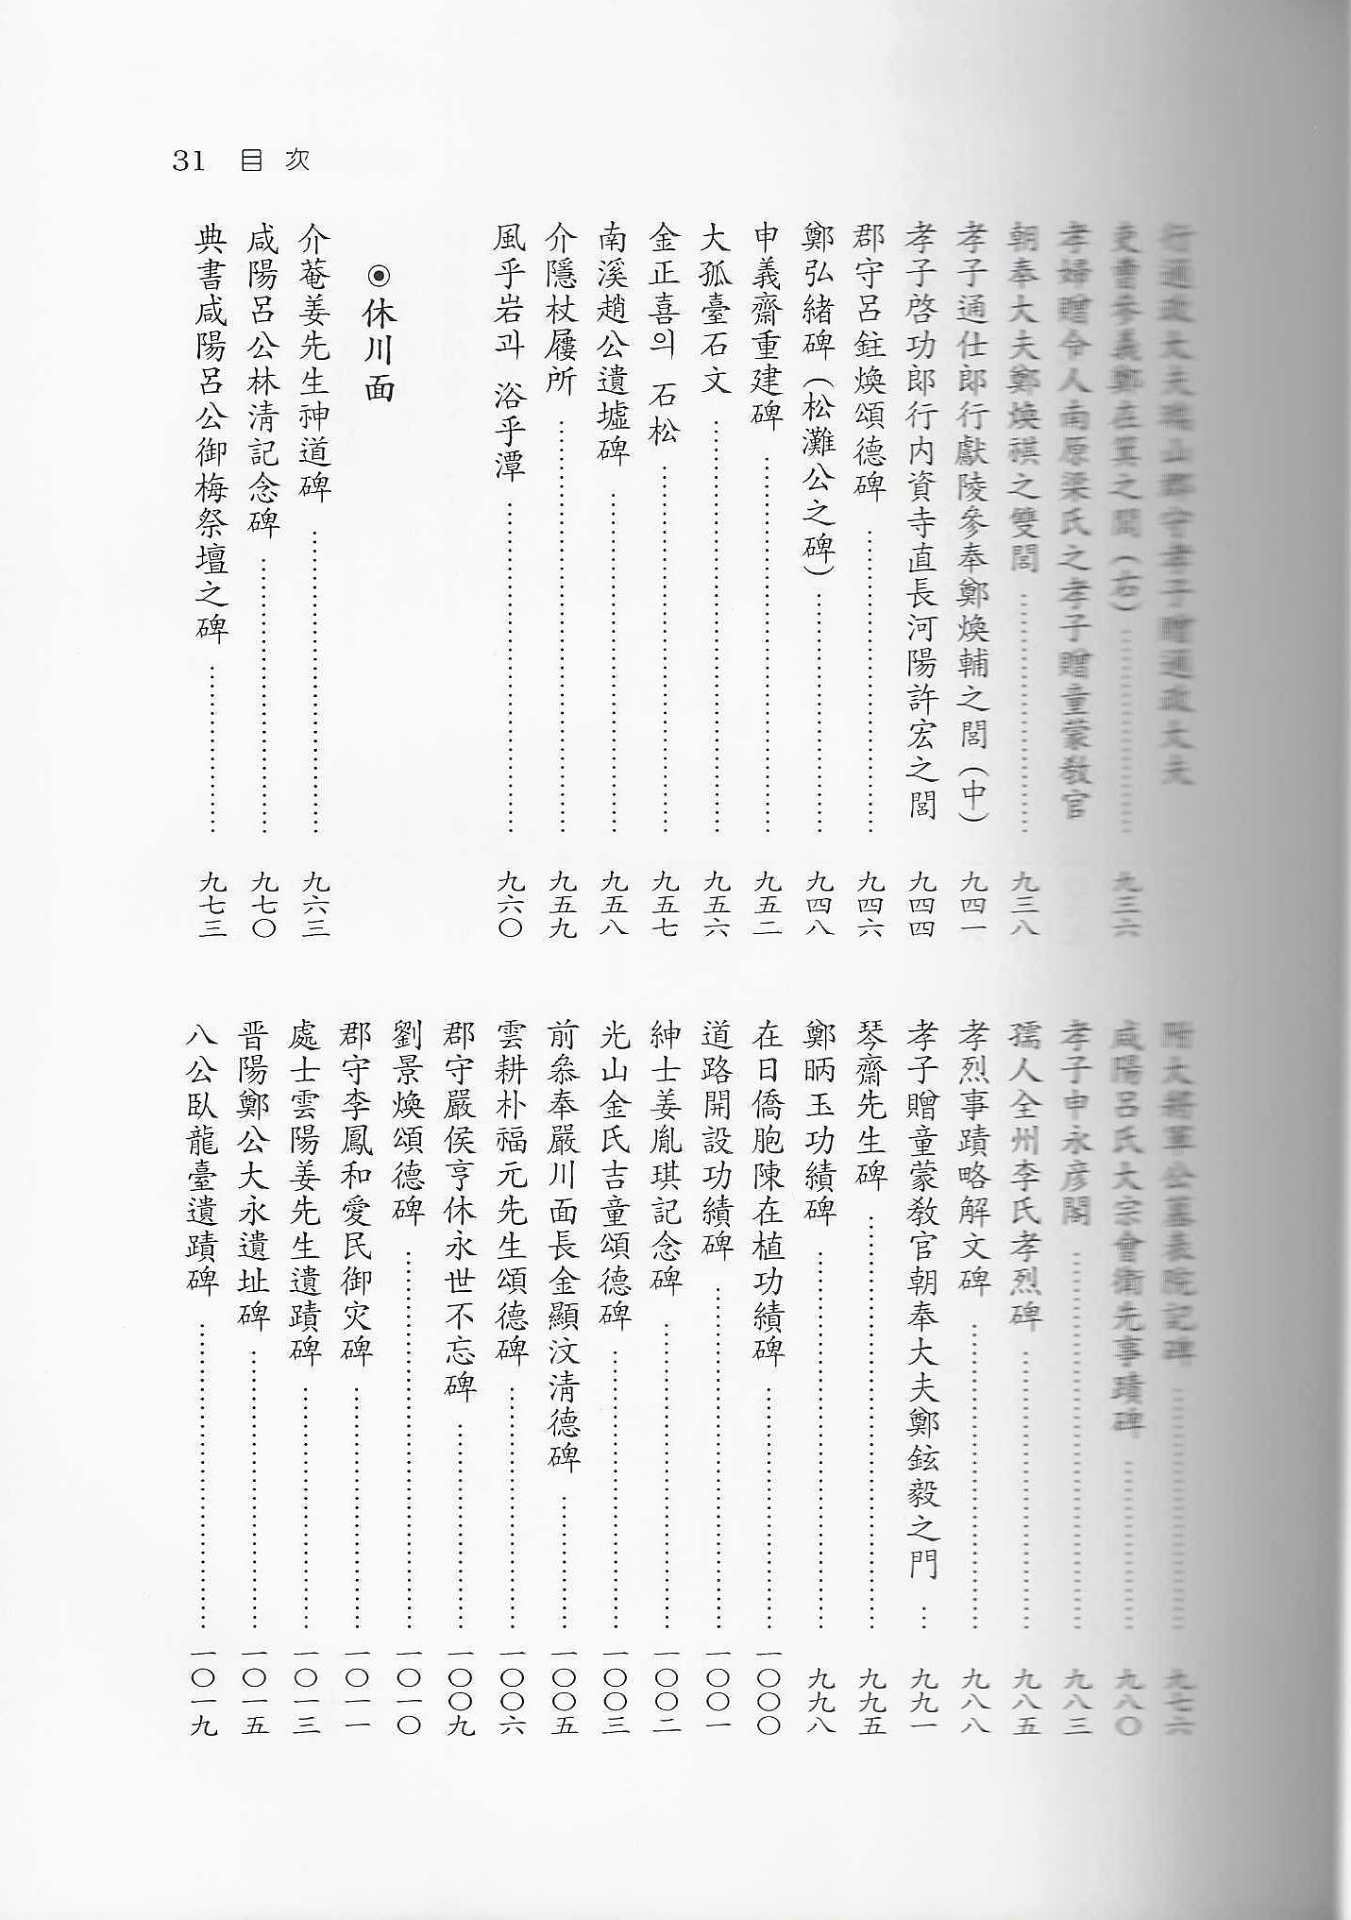 31 目次
行通政大夫瑞山郡守孝子贈通政大夫
吏曹參議鄭在箕之閭(右) 九三六
孝婦贈令人南原梁氏之孝子贈童蒙敎官
朝奉大夫鄭煥祺之雙閭 九三八
孝子通仕郎行獻陵參奉鄭煥輔之閭(中) 九四一
孝子啓功郎行内資寺直長河陽許宏之閭 九四四
郡守呂銈煥頌德碑 九四六
鄭弘緖碑(松灘公之碑) 九四八
申義齋重建碑 九五二
大孤臺石文 九五六
金正喜의 石松 九五七
南溪趙公遺墟碑 九五八
介隱杖屨所 九五九
風乎岩과 浴乎潭 九六〇
◉休川面
介菴姜先生神道碑 九六三
咸陽呂公林淸記念碑 九七〇
典書咸陽呂公御梅祭壇之碑 九七三
附大將軍公墓表院記碑 九七六
咸陽呂氏大宗會衛先事蹟碑 九八〇
孝子申永彦閣 九八三
孺人全州李氏孝烈碑 九八五
孝烈事蹟略解文碑 九八八
孝子贈童蒙敎官朝奉大夫鄭鉉毅之門 九九一
琴齋先生碑 九九五
鄭昞玉功績碑 九九八
在日僑胞陳在植功績碑 一〇〇〇
道路開設功績碑 一〇〇一
紳士姜胤琪記念碑 一〇〇二
光山金氏吉童頌德碑 一〇〇三
前叅奉嚴川面長金顯汶淸德碑 一〇〇五
雲耕朴福元先生頌德碑 一〇〇六
郡守嚴侯亨休永世不忘碑 一〇〇九
劉景煥頌德碑 一〇一〇
郡守李鳳和愛民御災碑 一〇一一
處士雲陽姜先生遺蹟碑 一〇一三
晋陽鄭公大永遺址碑 一〇一五
八公臥龍臺遺蹟碑 一〇一九